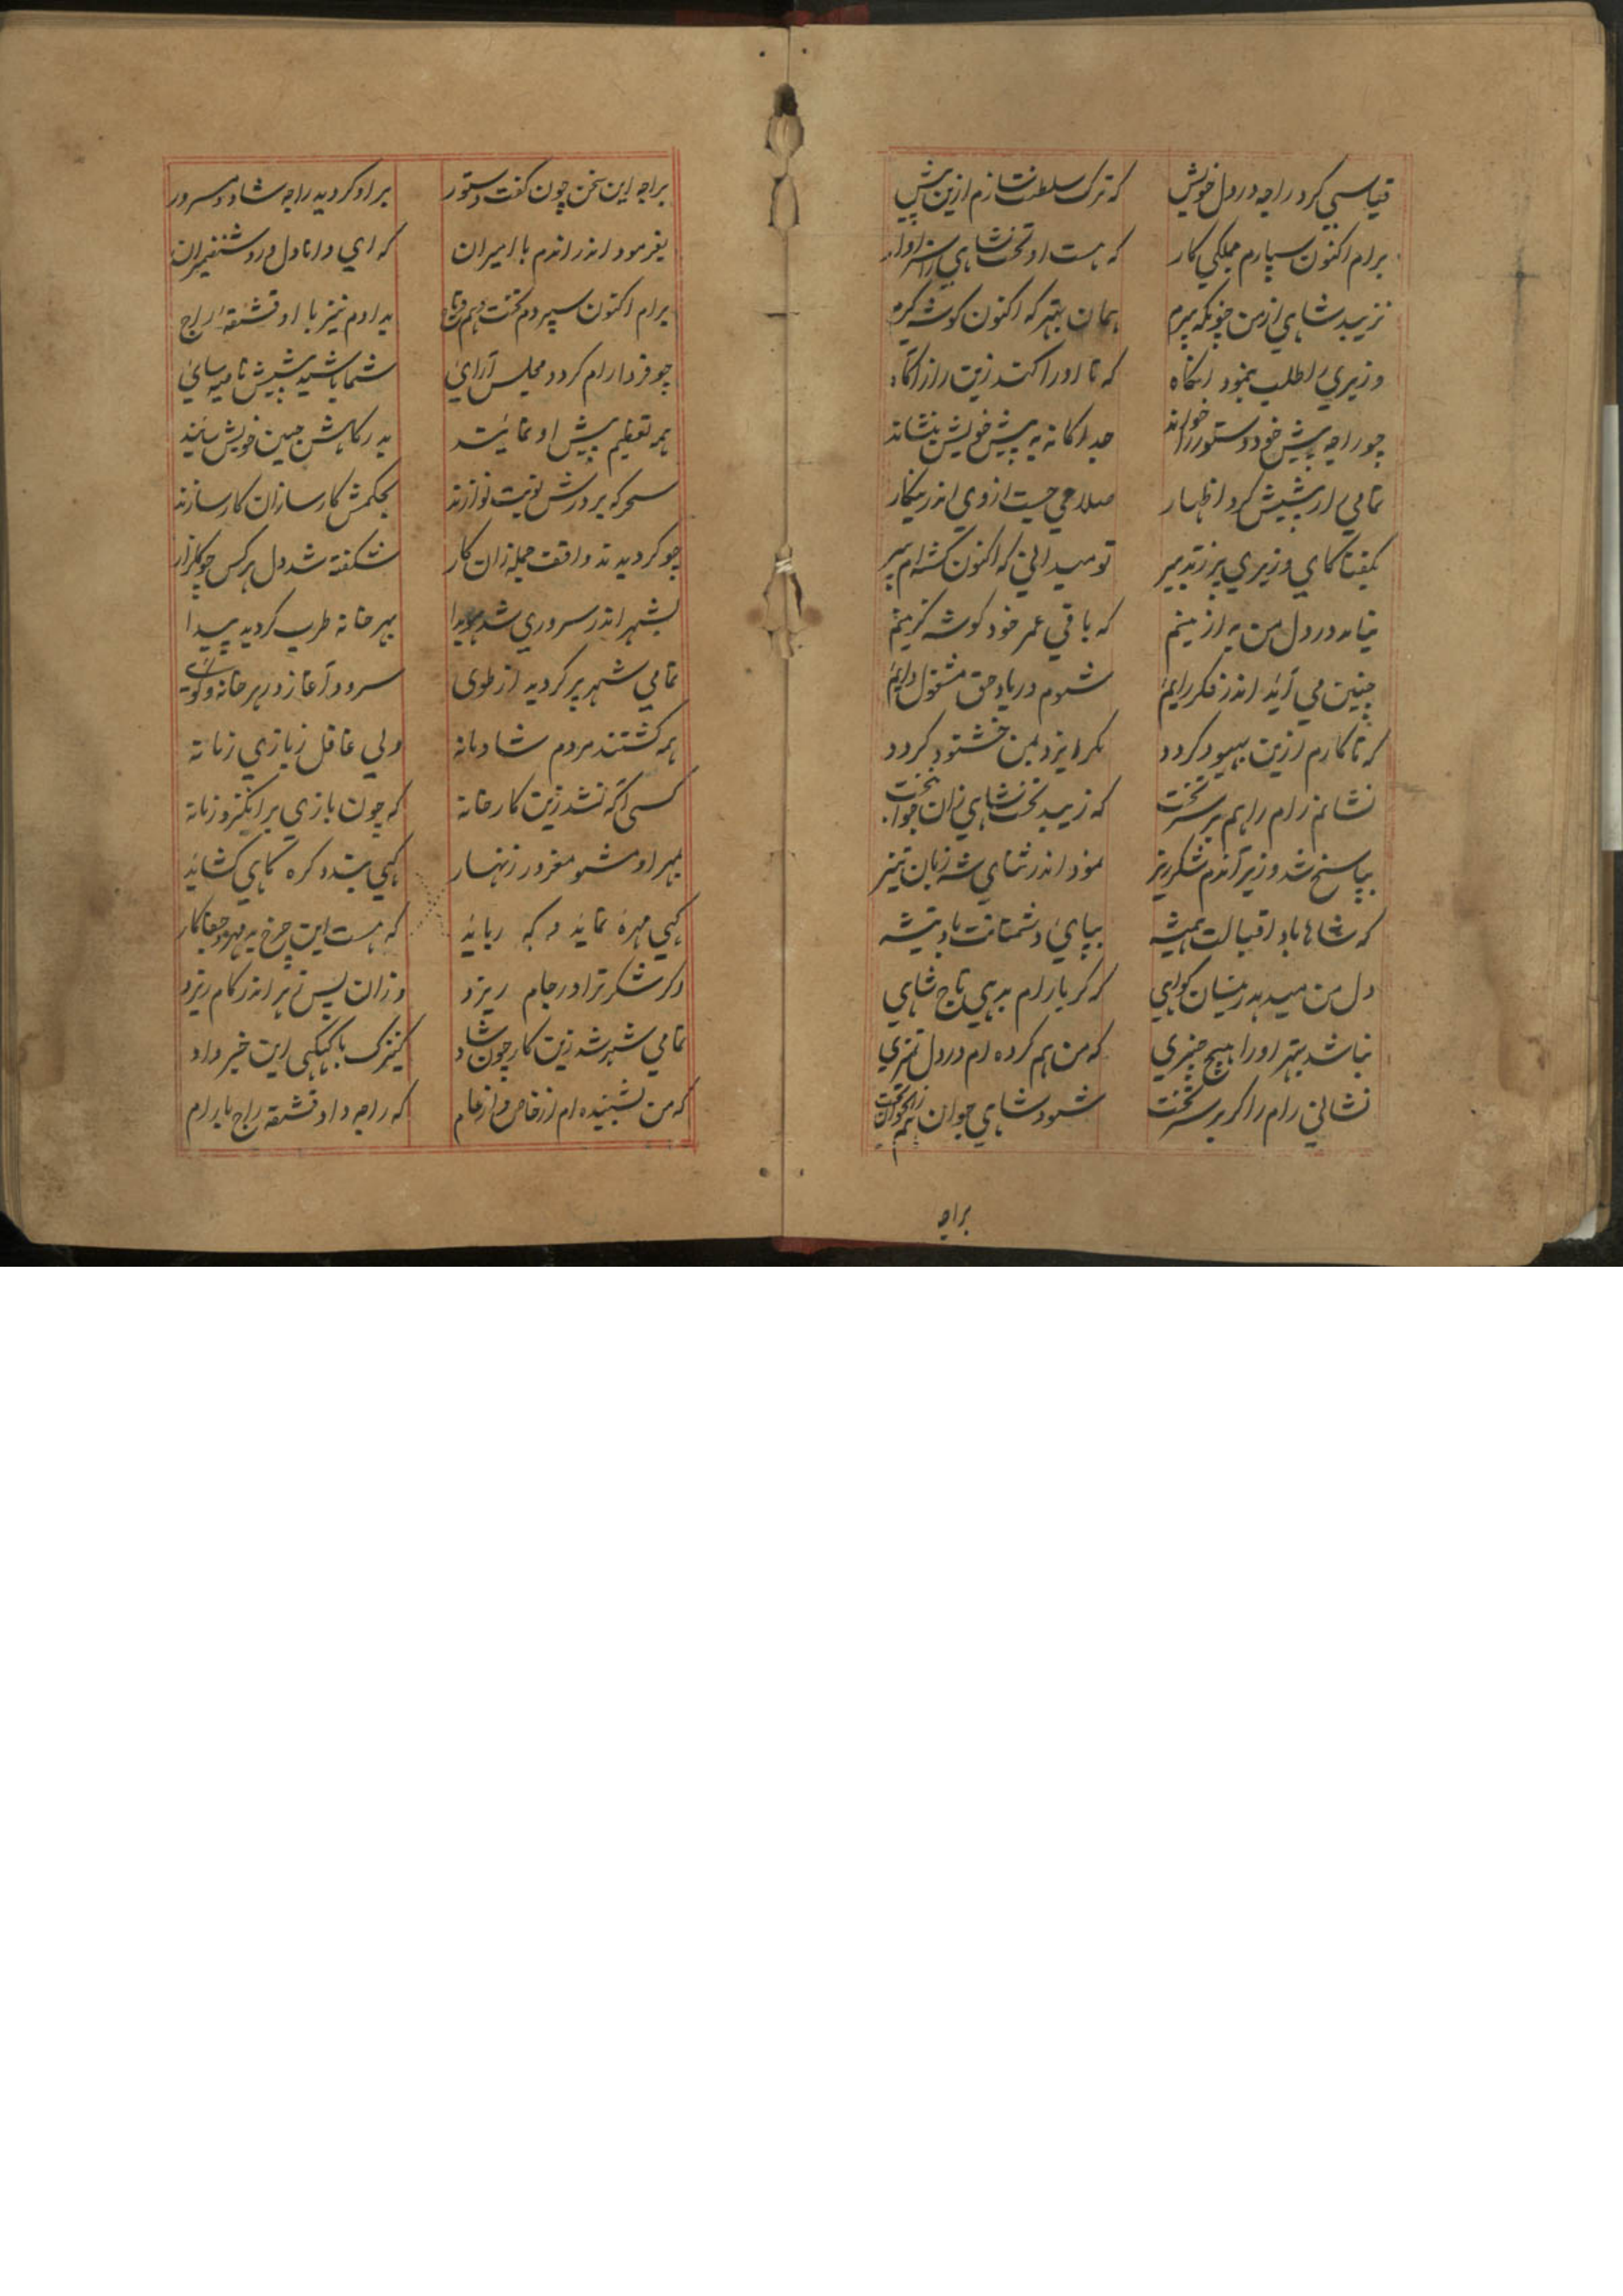 قیاسی کرد راجه در دل خویش که ترک سلطنت سازم ازین پیش
برام اکنون سپارم ملکی کار که هست او تخت شاهی را سزاوار
نزیبد شاهی از من چونکه پیرم همان بهتر که اکنون گوشه گیرم
وزیری را طلب بنمود آنگاه که تا او را کند زین راز آگاه
چو راجه پیش خود دستور را خواند جداگانه به پیش خویش بنشاند
تمامی راز پیشش کرد اظهار صلاحی جست از وی اندرینکار
بگفتا کای وزیری پر ز تدبیر تو میدانی که اکنون گشته‌ام پیر
بیامد در دل من به ازینم که باقی عمر خود گوشه گزینم
چنین می آید اندر فکر رایم شوم در یاد حق مشغول دایم
که تا کارم ازین بهبود گردد مگر ایزد بمن خشنود گردد
نشانم رام را هم بر سر تخت که زیبد تخت شاهی زان جوان بخت
بپاسخ شد وزیر آندم شکرریز نمود اندر ثنای شه زبان تیز
که شاها باد اقبالت همیشه بپای دشمنانت باد تیشه
دل من میدهد زینسان گواهی که گر با رام بدهی تاج شاهی
نباشد بهتر او را هیچ چیزی که من هم کرده ام در دل تمیزی
نشانی رام را گر بر سر تخت شود شاهی جوان
براجه
براجه این سخن چون گفت دستور بر او گردید راجه شاد و مسرور
بفرمود اندر اندم با امیران که ای دانا دل و روشن ضمیران
برام اکنون سپردم تخت و هم تاج بدادم نیز با او قشقهٔ راج
چو فردا رام گردد مجلس آرای شما باشید پیشش ناصیه سای
همه تعظیم پیش او نمائید بدرگاهش جبین خویش سائید
سحرگه بر درش نوبت نوازند بحکمش کارسازان کار سازند
چو گردیدند واقف جمله زان کار شکفته شد دل هر کس چو گلزار
بشهر اندر سروری شد هویدا بهر خانه طرب گردید پیدا
تمامی شهر پر گردید از طوی سرود آغاز در هر خانه و کوی
همه گشتند مردم شادمانه ولی غافل ز بازی زمانه
کسی آگه نشد زین کارخانه که چون بازی برانگیزد زمانه
بمهر او مشو مغرور زنهار گهی بندد گره گاهی گشاید
گهی مهره نماید گه رباید که هست این چرخ بد مهر و جفاکار
اگر شکر ترا در جام ریزد وزان پس زهر اندر کام ریزد
تمامی شهر شد زین کار چون شاد کنیزک با کیکی این خبر داد
که من بشنیده ام از خاص و از عام که راجه داد قشقه راج با رام